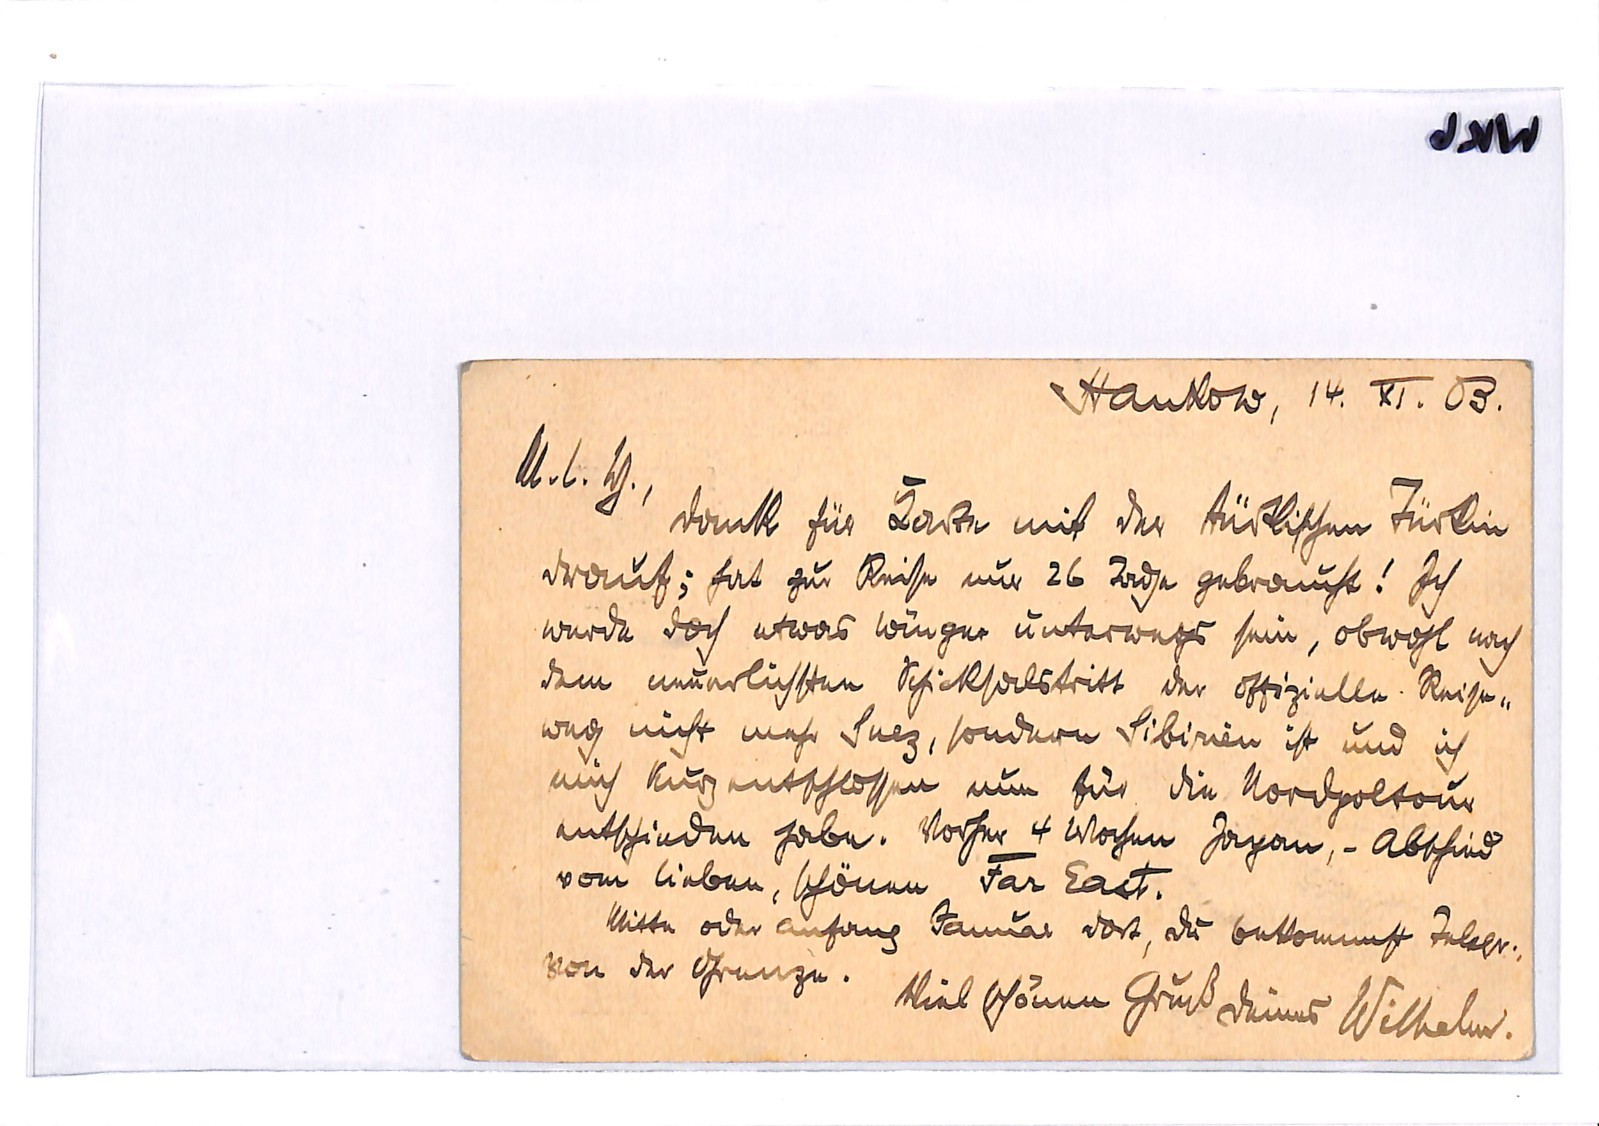 Hankow, 14. XI. 03.
M. l. W.,
Dank für Karte mit der türkischen Türkin
drauf; hat zur Reise nur 26 Tage gebraucht! Ich
werde doch etwas länger unterwegs sein, obwohl nach
dem neuerlichsten Schicksalstritt der offizielle Reise-
weg nicht mehr Suez, sondern Sibirien ist und ich
mich kurzentschlossen nun für die Nordpoltour
entschieden habe. Vorher 4 Wochen Japan, - Abschied
vom lieben, schönen Far East.
Mitte oder anfang Januar dort, du bekommst Telegr.
von der Grenze.
Viel schönen Gruß deines Wilhelm.